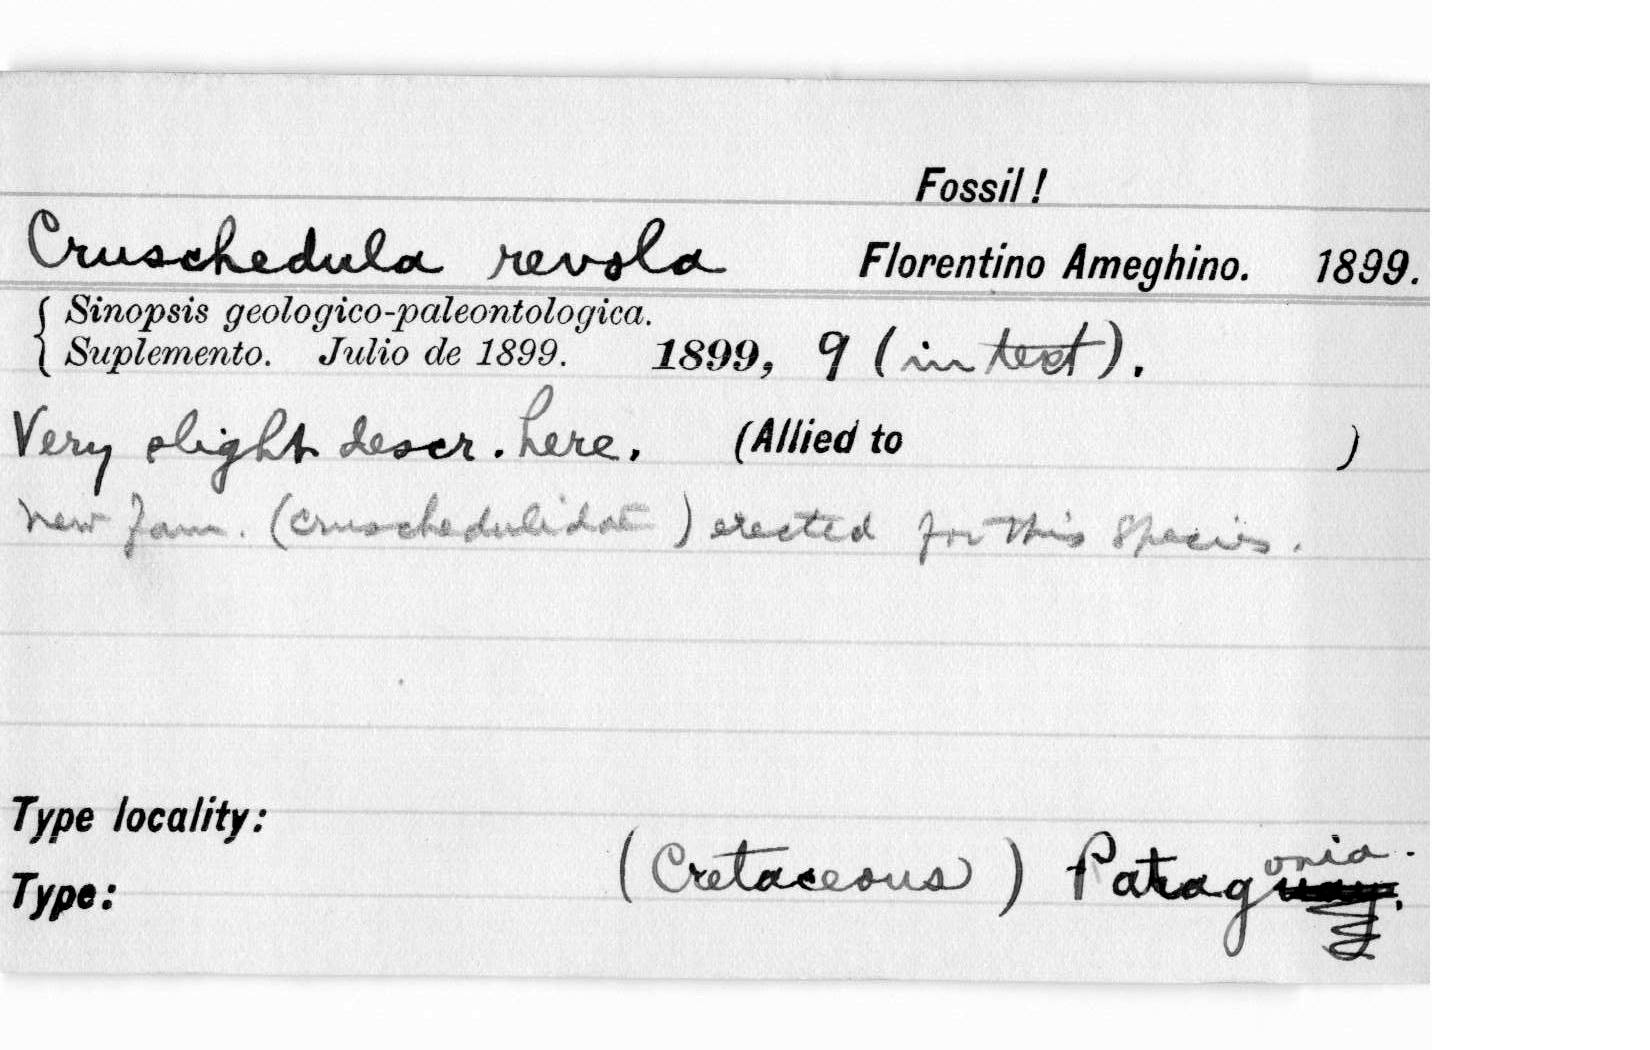 Fossil!
Cruschedula revola Florentino Ameghino. 1899.
{ Sinopsis geologico-paleontologica.
Suplemento. Julio de 1899. 1899, 9 (in text).
Very slight descr. here. (Allied to )
New fam. (Cruschedulidae) erected for this species.
Type locality:
(Cretaceous) Patagonia.
Type: